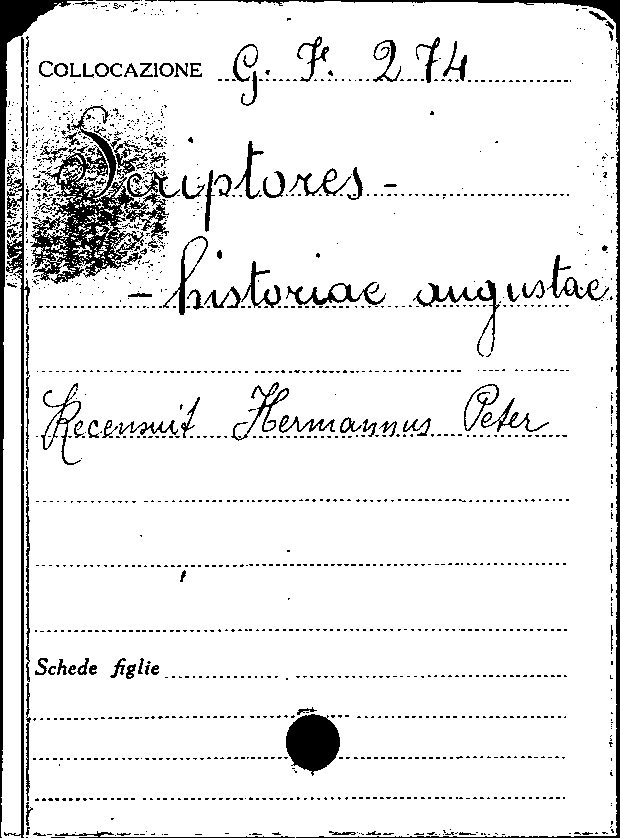 COLLOCAZIONE G. F. 274
Scriptores -
- historiae augustae.
Recensuit Hermannus Peter
Schede figlie